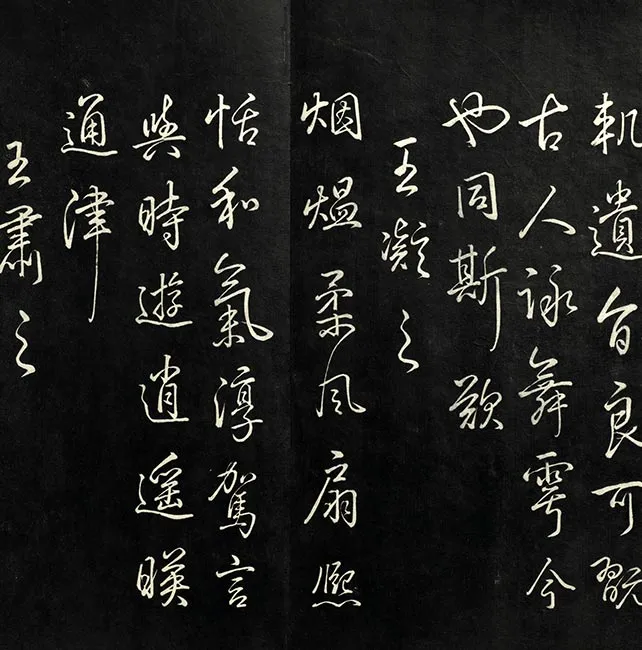 軌遺音良可翫
古人詠舞雩今
也同斯歎
王凝之
烟熅柔風扇熙
恬和氣淳駕言
與時遊逍遙暎
通津
王肅之